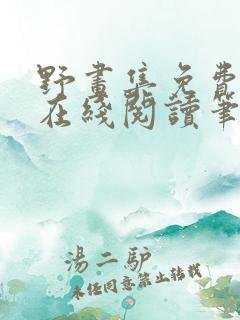 野畫集免費
在綫閱讀筆
湯二驴
未任同意禁止转载